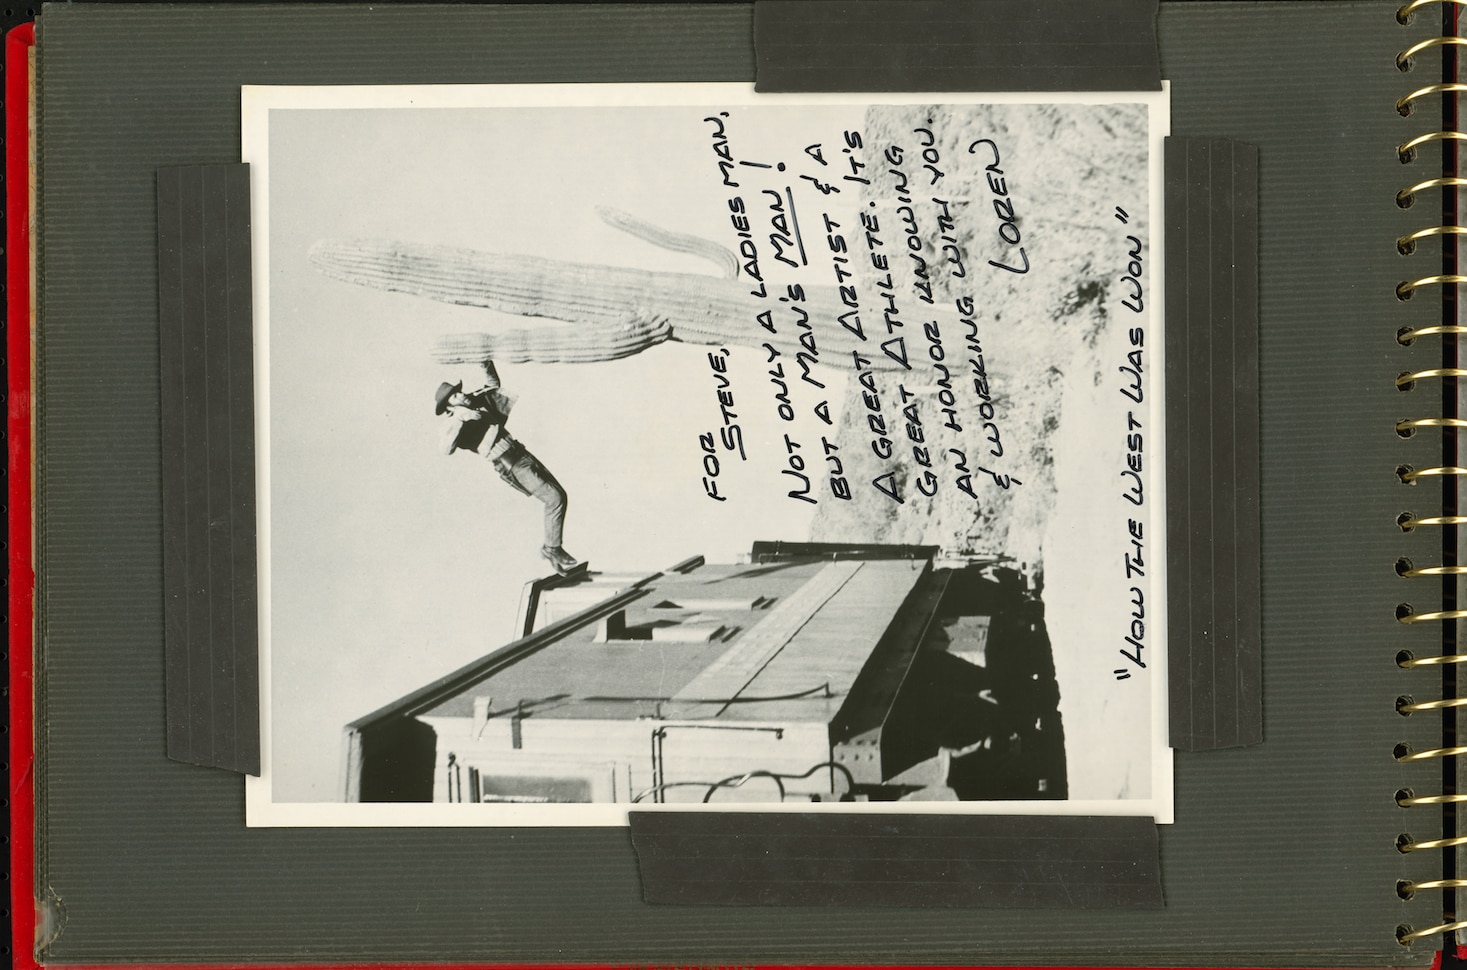 FOR
STEVE,
NOT ONLY A LADIES MAN,
BUT A MAN'S MAN!
A GREAT ARTIST & A
GREAT ATHLETE. IT'S
AN HONOR KNOWING
& WORKING WITH YOU.
LOREN
"HOW THE WEST WAS WON"